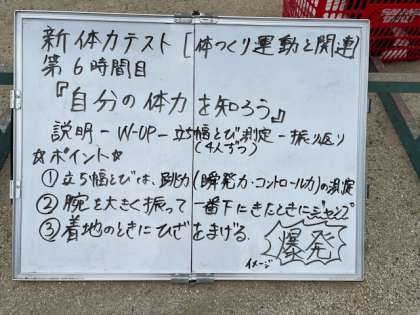 新体力テスト[体つくり運動と関連]
第6時間目
『自分の体力を知ろう』
説明－W-UP－立ち幅とび測定－振り返り
(4人ずつ)
☆ポイント☆
①立ち幅とびは、跳力(瞬発力・コントロール力)の測定
②腕を大きく振って一番下にきたときにジャンプ
③着地のときにひざをまげる。
イメージ 爆発